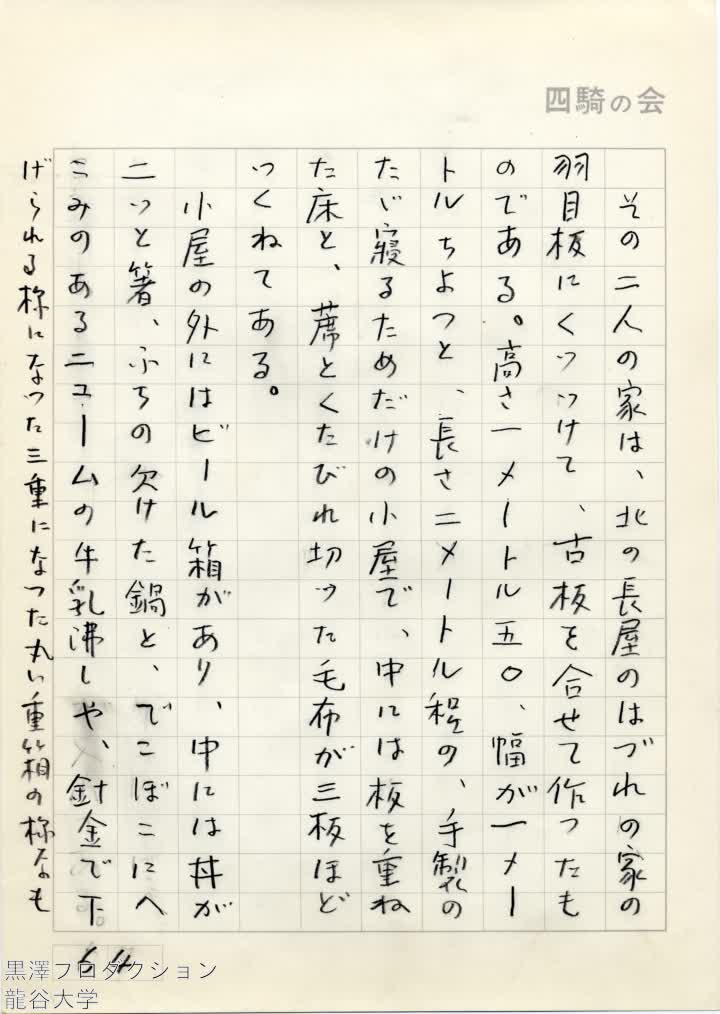 四騎の会
その二人の家は、北の長屋のはづれの家の
羽目板にくっつけて、古板を合せて作ったも
のである。高さ一メートル五〇、幅が一メー
トルちょっと、長さ二メートル程の、手製の
たゞ寝るためだけの小屋で、中には板を重ね
た床と、蓆とくたびれ切った毛布が三板ほど
つくねてある。
小屋の外にはビール箱があり、中には丼が
二つと箸、ふちの欠けた鍋と、でこぼこにへ
こみのあるニュームの牛乳沸しや、針金で下
げられる様になった三重になった丸い重箱の様なも
64
黒澤プロダクション
龍谷大学